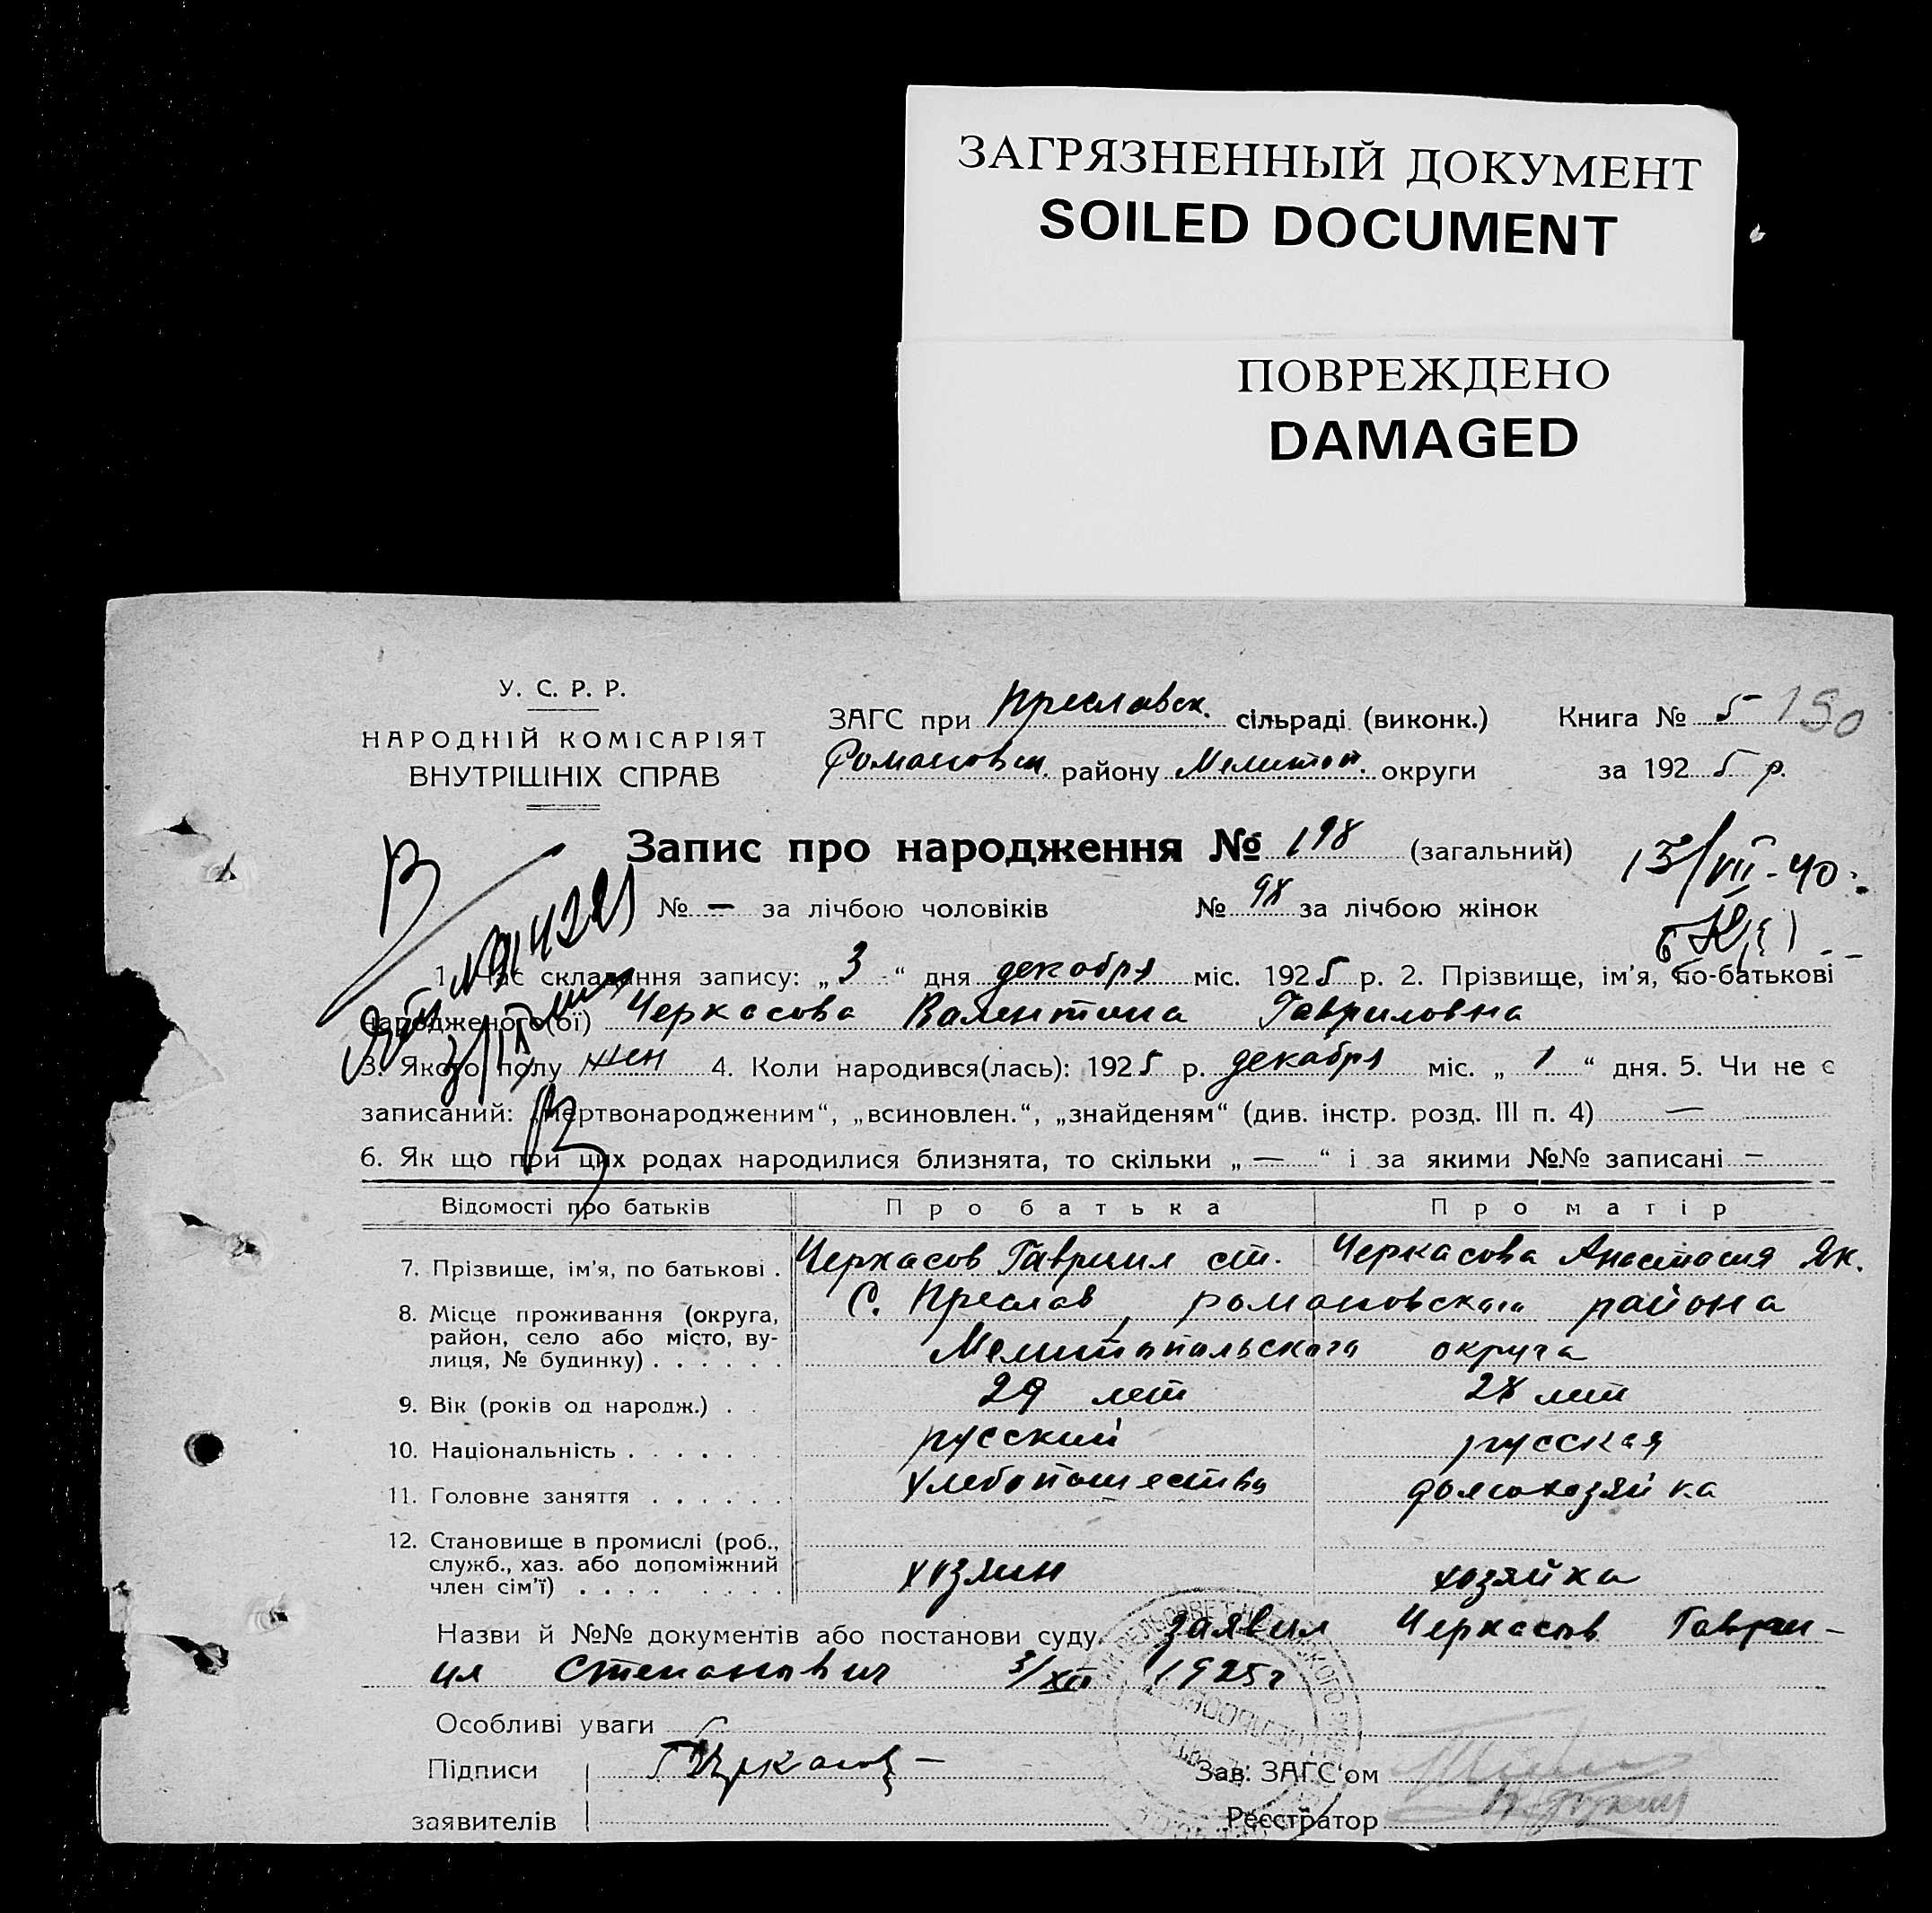 ЗАГРЯЗНЕННЫЙ ДОКУМЕНТ
SOILED DOCUMENT
ПОВРЕЖДЕНО
DAMAGED
У. С. Р. Р.
НАРОДНІЙ КОМІСАРІЯТ
ВНУТРІШНІХ СПРАВ
ЗАГС при Преславск. сільраді (виконк.) Книга № 5 190
Романовск. району Мелитоп. округи за 1925 р.
Запис про народження № 198 (загальний)
13/VII-40
№ — за лічбою чоловіків № 98 за лічбою жінок
1. Час складання запису: „3“ дня декабря міс. 1925 р. 2. Прізвище, ім'я, по-батькові
народженого(ої) Черкасова Валентина Гавриловна
3. Якого полу жен 4. Коли народився(лась): 1925 р. декабря міс. „1“ дня. 5. Чи не є
записаний: „мертвонародженим“, „всиновлен.“, „знайденям“ (див. інстр. розд. III п. 4) —
6. Як що при цих родах народилися близнята, то скільки „—“ і за якими №№ записані —
Відомості про батьків Про батька Про матір
7. Прізвище, ім'я, по батькові . Черкасов Гавриил ст. Черкасова Анастасия Як.
8. Місце проживання (округа, С. Преслав, романовского района
район, село або місто, ву-
лиця, № будинку) . . . . . . Мелитопольского округа
9. Вік (років од народж.) . . 29 лет 28 лет
10. Національність . . . . . . русский русская
11. Головне заняття . . . . . . хлебопашество домохозяйка
12. Становище в промислі (роб.,
служб., хаз. або допоміжний хозяин хозяйка
член сім'ї) . . . . . . . .
Назви й №№ документів або постанови суду заявил Черкасов Гаври-
ил Степанович 3/XII 1925г
Особливі уваги
Підписи Г Черкасов Зав. ЗАГС'ом
заявителів Реєстратор